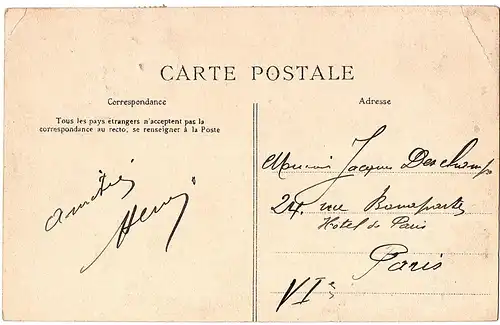 CARTE POSTALE
Correspondance
Tous les pays étrangers n'acceptent pas la
correspondance au recto, se renseigner à la Poste
Amitiés
Henri
Adresse
Monsieur Jacques Deschamps
24, rue Bonaparte
Hôtel de Paris
Paris
VIe